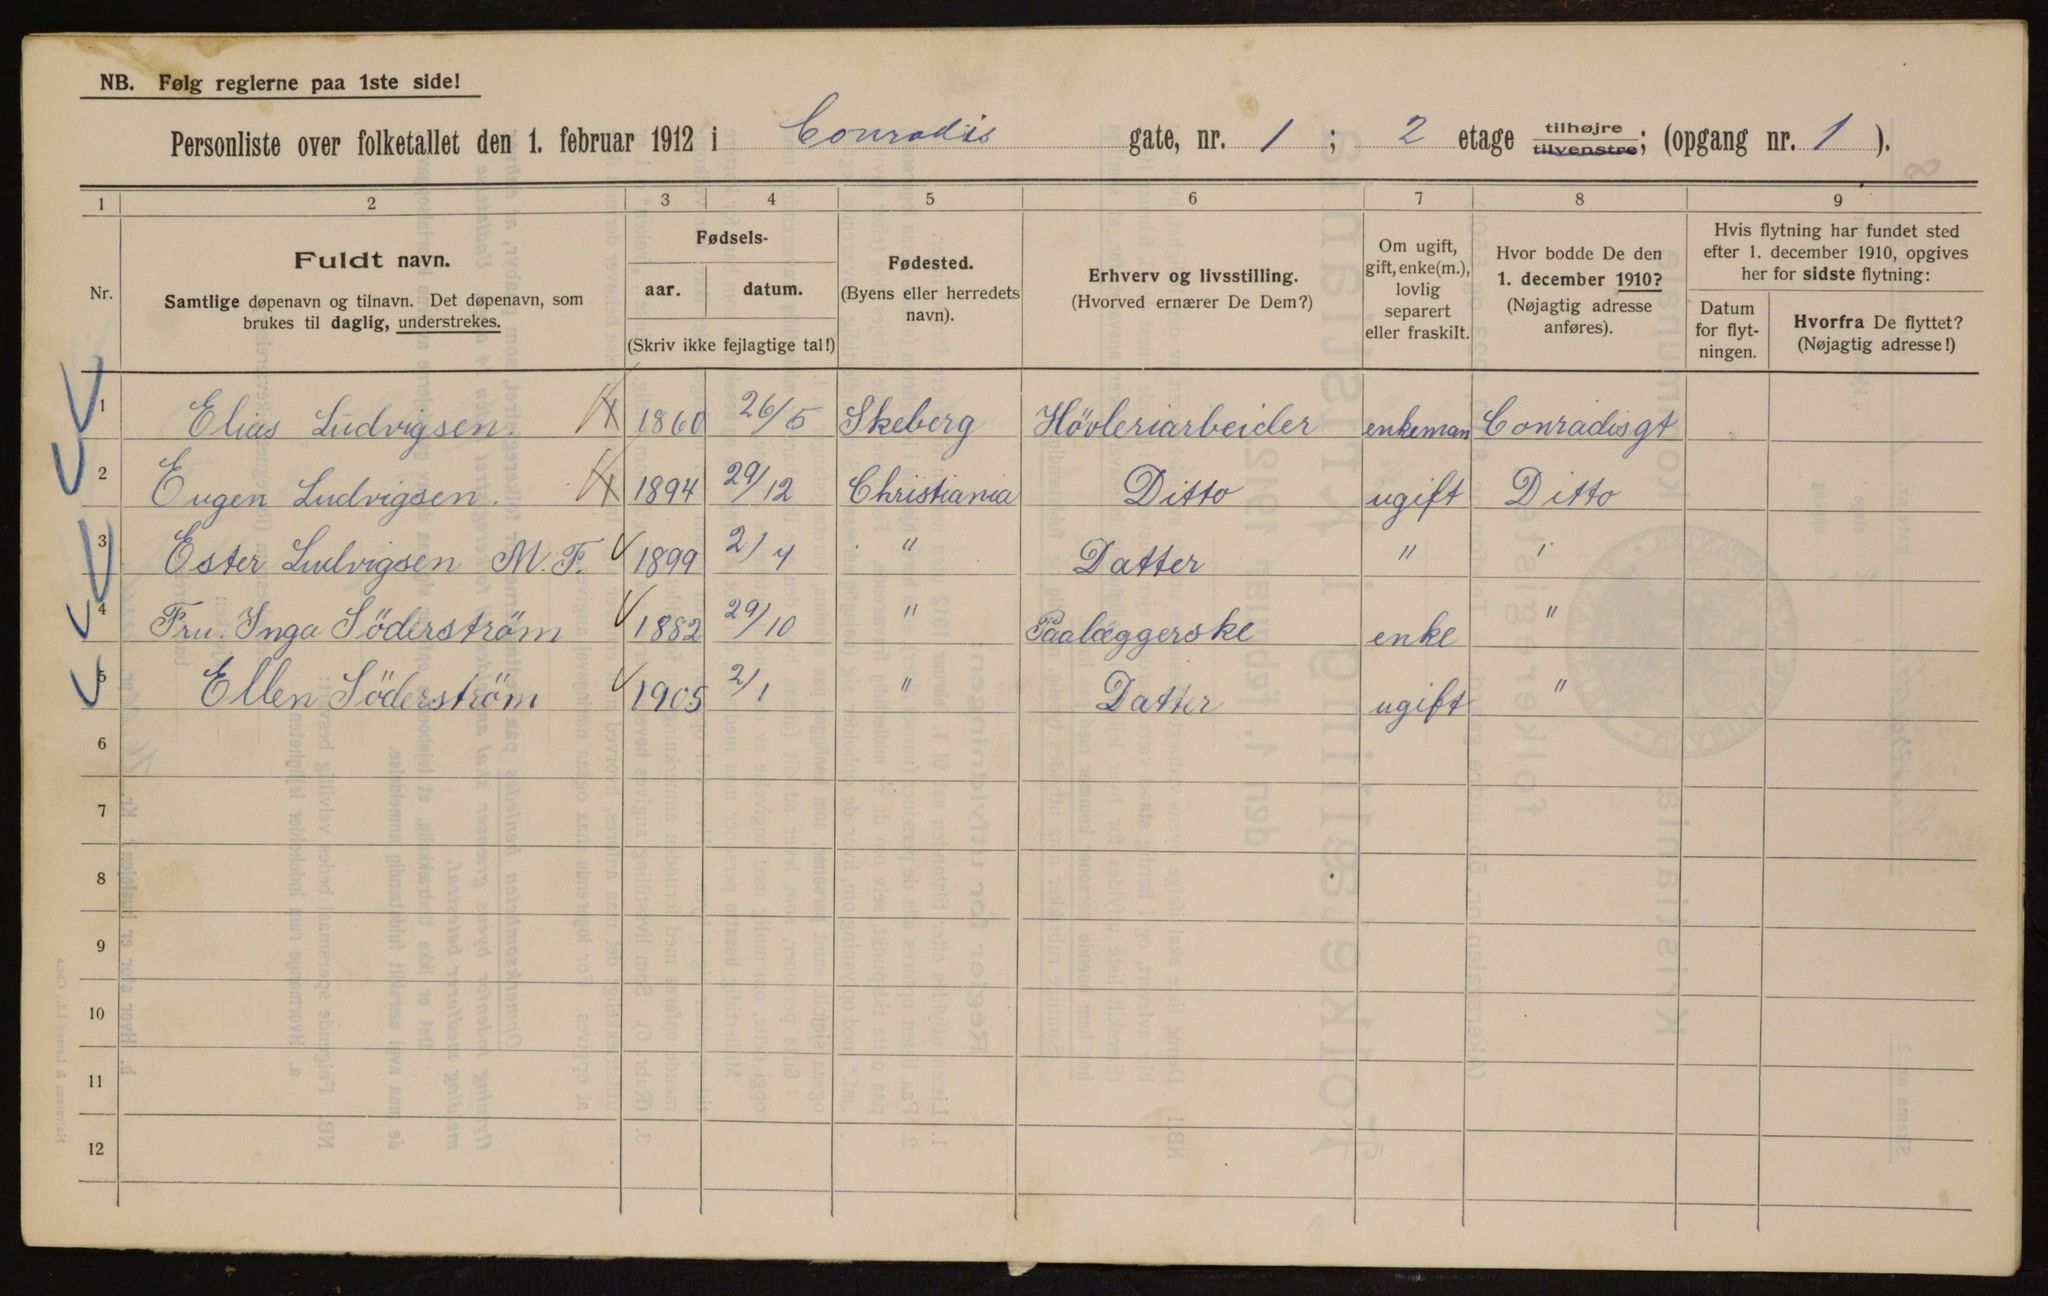 NB. Følg reglerne paa 1ste side!
Personliste over folketallet den 1. februar 1912 i Conradis gate, nr. 1 ; 2 etage tilhøjre tilvenstre; (opgang nr. 1 ).
1 2 3 4 5 6 7 8 9
Nr.
Fuldt navn.
Samtlige døpenavn og tilnavn. Det døpenavn, som
brukes til daglig, understrekes.
Fødsels-
aar. datum.
(Skriv ikke fejlagtige tal!)
Fødested.
(Byens eller herredets
navn).
Erhverv og livsstilling.
(Hvorved ernærer De Dem?)
Om ugift,
gift, enke(m.),
lovlig
separert
eller fraskilt.
Hvor bodde De den
1. december 1910?
(Nøjagtig adresse
anføres).
Hvis flytning har fundet sted
efter 1. december 1910, opgives
her for sidste flytning:
Datum
for flyt-
ningen.
Hvorfra De flyttet?
(Nøjagtig adresse!)
1 Elias Ludvigsen. 1860 26/5 Skeberg Hövleriarbeider enkeman Conradisgt
2 Eugen Ludvigsen. 1894 29/12 Christiania Ditto ugift Ditto
3 Ester Ludvigsen M. F. 1899 2/4 " Datter " "
4 Fru. Inga Söderström 1882 29/10 " Paalæggerske enke "
5 Ellen Söderström 1905 2/1 " Datter ugift "
6
7
8
9
10
11
12